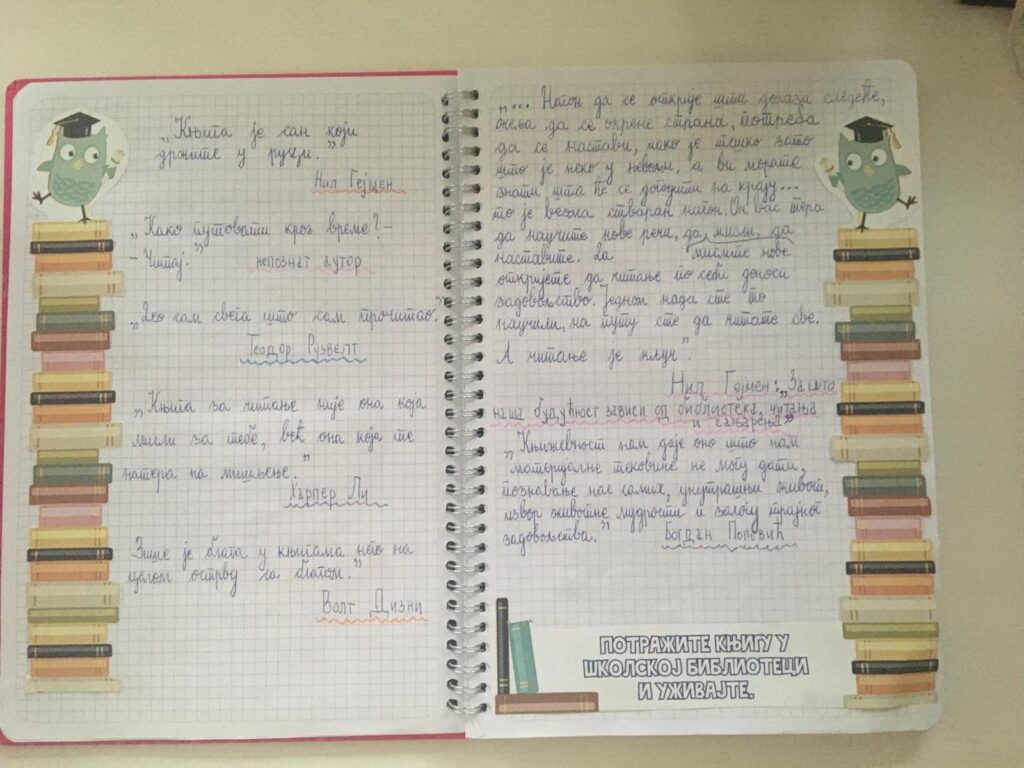 „Књига је сан који
држите у руци."
Нил Гејмен
„Како путовати кроз време?-
- Читај."
непознат аутор
„Део сам света што сам прочитао."
Теодор Рузвелт
„Књига за читање није она која
мисли за тебе, већ она која те
натера на мишљење."
Харпер Ли
Више је блага у књигама него на
целом острву са благом."
Волт Дизни
„... Нагон да се открије шта долази следеће,
жеља да се окрене страна, потреба
да се настави, иако је тешко зато
што је неко у невољи, а ви морате
знати шта ће се догодити на крају...
то је веома стваран нагон. Он вас тера
да научите нове речи, да мисли, да
наставите. Да мислите нове
откријете да читање по себи доноси
задовољство. Једном када сте то
научили, на путу сте да читате све.
А читање је кључ".
Нил Гејмен: „Зашто
наша будућност зависи од библиотека, читања
и сањарења"
„Књижевност нам даје оно што нам
материјалне тековине не могу дати,
познавање нас самих, унутрашњи живот,
извор животне мудрости и залогу трајног
задовољства."
Богдан Поповић
ПОТРАЖИТЕ КЊИГУ У
ШКОЛСКОЈ БИБЛИОТЕЦИ
И УЖИВАЈТЕ.